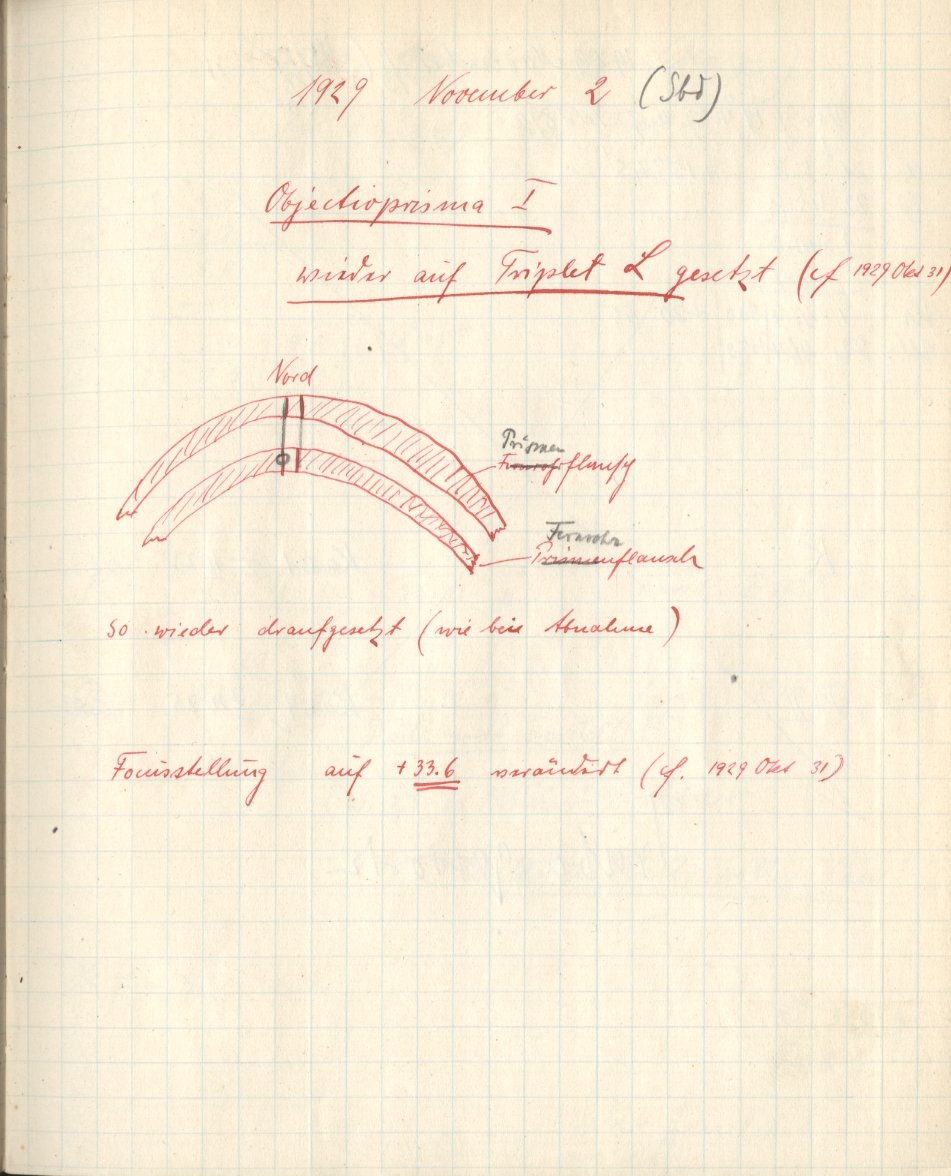 1929 November 2 (Sbd)
Objectivprisma I
wieder auf Triplet L gesetzt (cf 1929 Okt 31)
Nord
Prismen
Fernrohrflansch
Fernrohr
Prismenflansch
So wieder draufgesetzt (wie beie Abnahme)
Focusstellung auf + 33.6 verändert (cf. 1929 Okt 31)